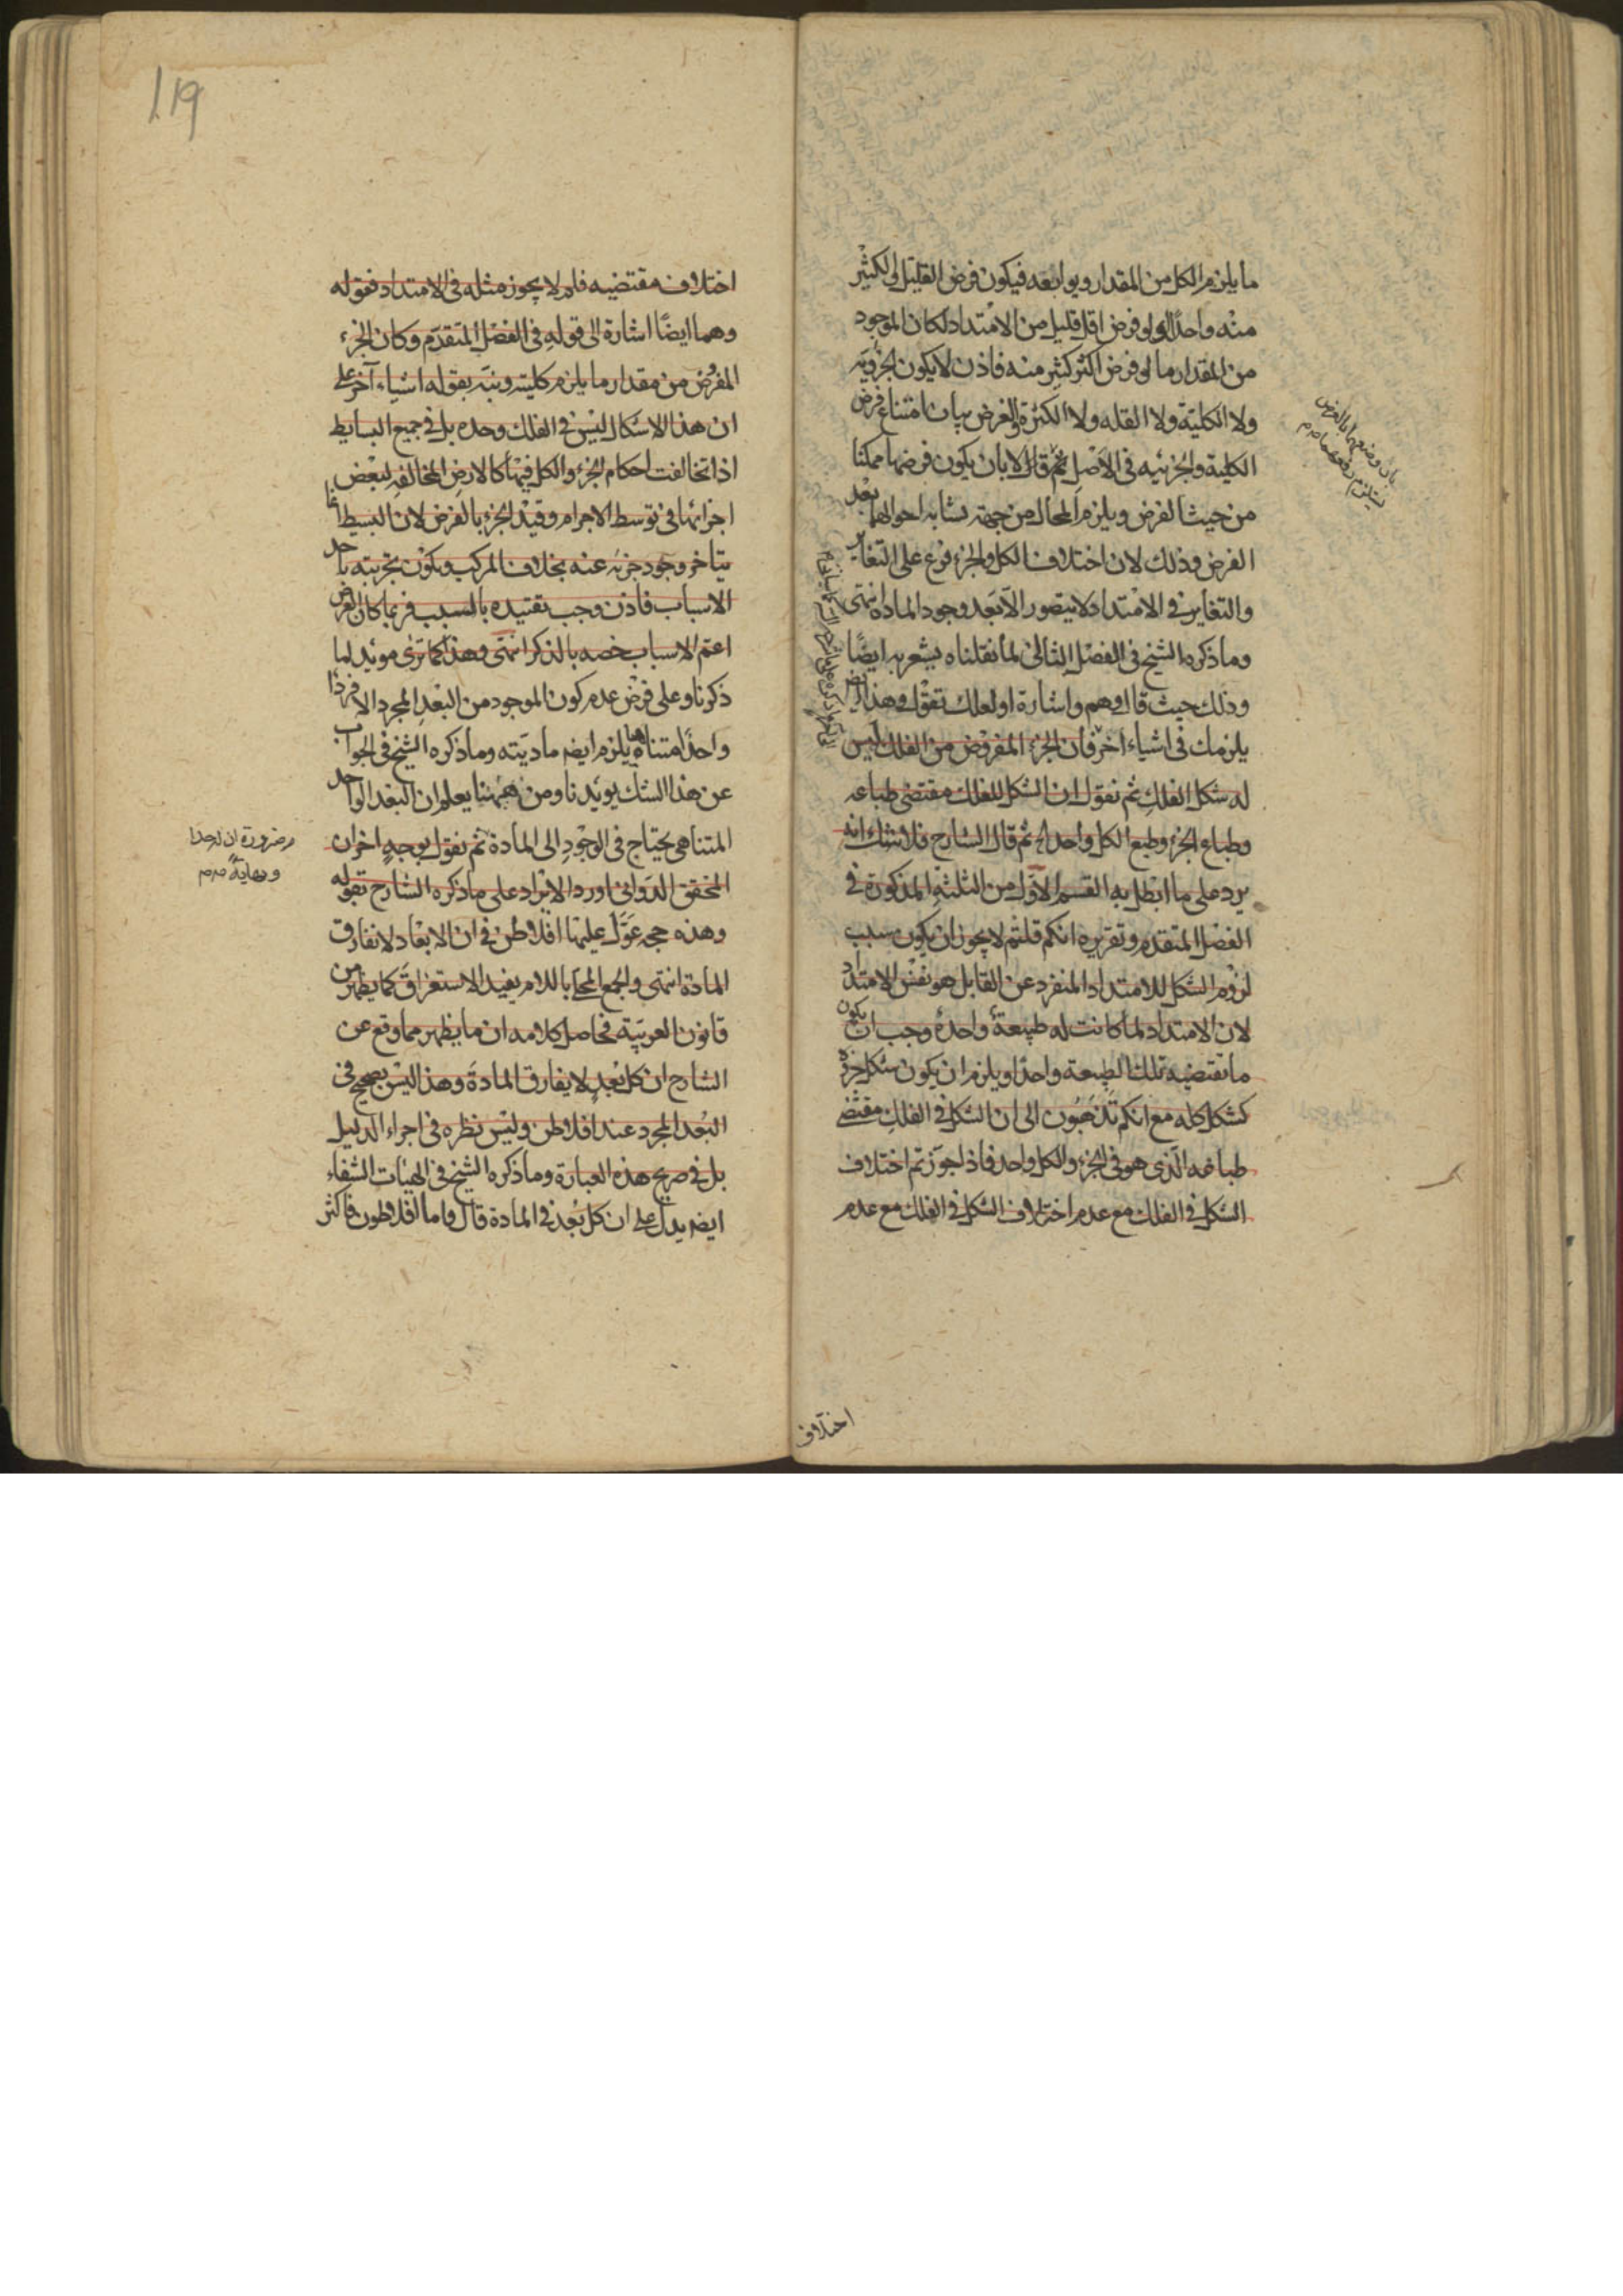 ما يلزم الكل من المقدار وتوابعه فيكون فرض القليل الى الكثير
منه واحدًا لو فرض اقل قليل من الامتداد لكان الموجود
من المقدار ما لو فرض اكثر كثير منه فاذن لا يكون الجزوية
ولا الكلية ولا القله ولا الكثرة والغرض بيان امتناع فرض
الكلية والجزئيه فى الاصل ثم قال الا بان يكون فرضهما ممكنا
من حيث الفرض ويلزم المحال من جهة تشابه احوالهما بعد
الفرض وذلك لان اختلاف الكل والجزء فرع على التغاير
والتغاير فى الامتداد لا يتصور الا بعد وجود المادة انتهى
وما ذكره الشيخ فى الفصل الثانى لما نقلناه يشعر به ايضًا
وذلك حيث قال وهم واشارة او لعلك تقول وهذا ايضا
يلزمك فى اشياء اخر فان الجزء المفروض من الفلك ليس
له شكل الفلك ثم نقول ان الشكل للفلك مقتضى طباعه
وطباع الجزء وطبع الكل واحد الخ ثم قال الشارح فلا شك انه
يرد على ما ابطل به القسم الاول من الثلثة المذكورة فى
الفصل المتقدم وتقريره انكم قلتم لا يجوز ان يكون سبب
لزوم الشكل للامتداد المنفرد عن القابل هو نفس الامتداد
لان الامتداد لما كانت له طبيعة واحدة وجب ان يكون
ما تقتضيه تلك الطبيعة واحدًا ويلزم ان يكون شكل جزءه
كشكل كله مع انكم تذهبون الى ان الشكل فى الفلك مقتضى
طباعه الذى هو فى الجزء والكل واحد فاذا جوزتم اختلاف
الشكل فى الفلك مع عدم اختلاف الشكل فى الفلك مع عدم
بان وضعهما بالفرض
يستلزم رفعهما
اختلاف
119
اختلاف مقتضيه فلم لا يجوز مثله فى الامتداد فقوله
وهما ايضًا اشارة الى قوله فى الفصل المتقدم وكان الجزء
المفروض من مقدار ما يلزم كليته ونبه بقوله اشياء آخر على
ان هذا الاشكال ليس فى الفلك وحده بل فى جميع البسايط
اذا تخالفت احكام الجزء والكل فيها كالارض المخالفة لبعض
اجزائها فى توسط الاجرام وقيد الجزء بالفرض لان البسيط انما
يتاخر وجود جزئه عنه بخلاف المركب ويكون تجزيته باحد
الاسباب فاذن وجب تقييده بالسبب فربما كان الفرض
اعم الاسباب خصه بالذكر انتهى وهذا كما ترى مويد لما
ذكرنا وعلى فرض عدم كون الموجود من البعد المجرد الا فردًا
واحدًا متناهيا يلزم ايضه ماديته وما ذكره الشيخ فى الجواب
عن هذا الشك يويدنا ومن ههنا يعلم ان البعد الواحد
المتناهى يحتاج فى الوجود الى المادة ثم نقول بوجه اخر ان
المحقق الدوانى اورد الايراد على ما ذكره الشارح بقوله
وهذه حجه عوّل عليها افلاطن فى ان الابعاد لا تفارق
المادة انتهى والجمع المحلى باللام يفيد الاستغراق كما يظهر من
قانون العربية فحاصل كلامه ان ما يظهر مما وقع عن
الشارح ان كل بعد لا يفارق المادة وهذا ليس بصحيح فى
البعد المجرد عند افلاطن وليس نظره فى اجراء الدليل
بل فى صريح هذه العبارة وما ذكره الشيخ فى الهيات الشفاء
ايضه يدل على ان كل بعد فى المادة قال واما افلاطون فاكثر
ضرورة ان له حدا
ونهاية